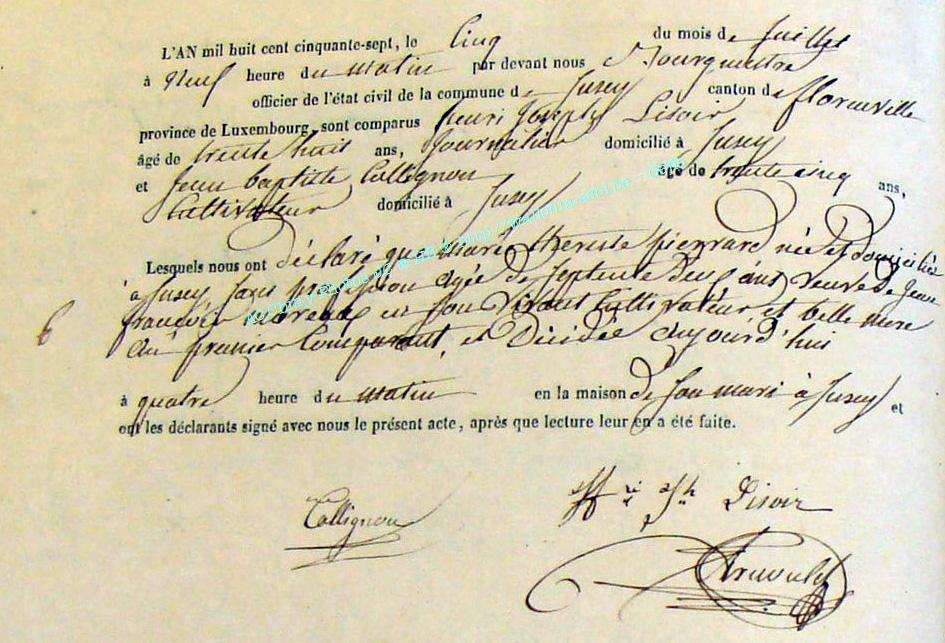 L'AN mil huit cent cinquante-sept, le Cinq du mois de Juillet
à Neuf heure du matin par devant nous
officier de l'état civil de la commune de Jusey canton de florenville
province de Luxembourg, sont comparus henri Joseph Lisoir
âgé de trente huit ans, Journalier domicilié à Jusey
et Jean baptiste Collignon âgé de trente cinq ans,
Cultivateur domicilié à Jusey
Lesquels nous ont déclaré que marie therese pierrard née et domiciliée
à Jusey, sans profession agée de septente deux ans veuve de Jean
françois en son vivant Cultivateur, et belle mere
du premier Comparant, et Décédée aujourd'hui
à quatre heure du matin en la maison de son mari à Jusey et
ont les déclarants signé avec nous le présent acte, après que lecture leur en a été faite.
Collignon Lisoir